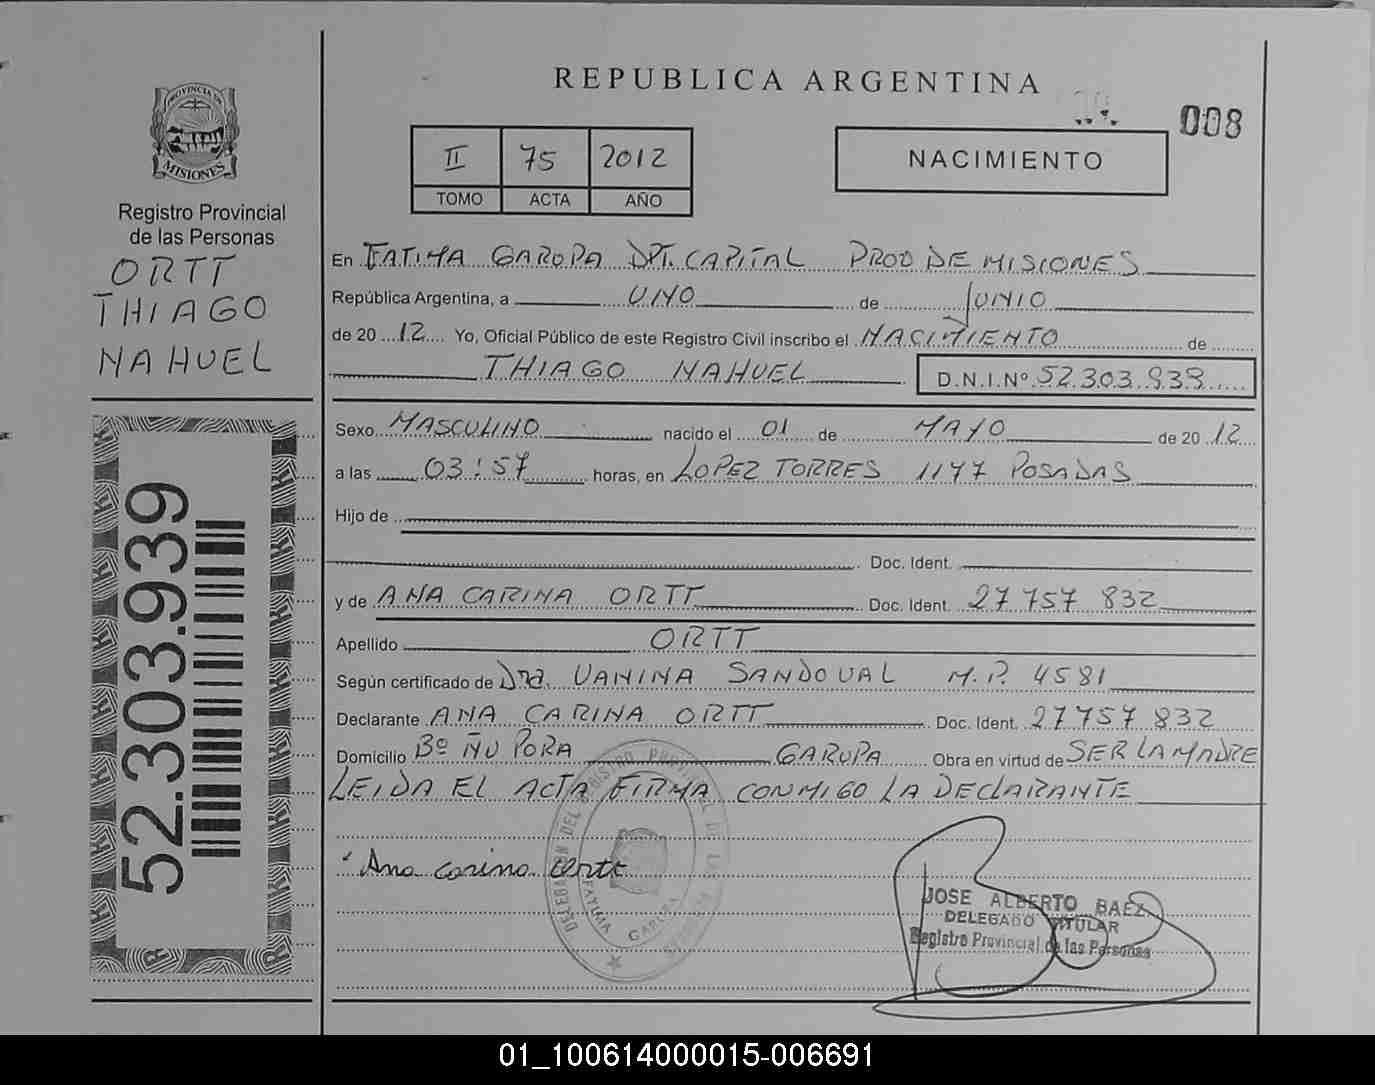 REPUBLICA ARGENTINA
008
PROVINCIA DE
MISIONES
Registro Provincial
de las Personas
ORTT
THIAGO
NAHUEL
52.303.939
II 75 2012
TOMO ACTA AÑO
NACIMIENTO
En FATIMA GARUPA DPT. CAPITAL PROV DE MISIONES
República Argentina, a UNO de JUNIO
de 20 12 Yo, Oficial Público de este Registro Civil inscribo el NACIMIENTO de
THIAGO NAHUEL D.N.I.Nº 52.303.939
Sexo MASCULINO nacido el 01 de MAYO de 20 12
a las 03:57 horas, en LOPEZ TORRES 1177 POSADAS
Hijo de
Doc. Ident.
y de ANA CARINA ORTT Doc. Ident. 27 757 832
Apellido ORTT
Según certificado de Dra. VANINA SANDOVAL M.P. 4581
Declarante ANA CARINA ORTT Doc. Ident. 27 757 832
Domicilio Bº ÑU PORA GARUPA Obra en virtud de SER LA MADRE
LEIDA EL ACTA FIRMA CONMIGO LA DECLARANTE
Ana carina Ortt
DELEGACION DEL REGISTRO PROVINCIAL DE LAS PERSONAS
FATIMA GARUPA
JOSE ALBERTO BAEZ
DELEGADO TITULAR
Registro Provincial de las Personas
01_100614000015-006691